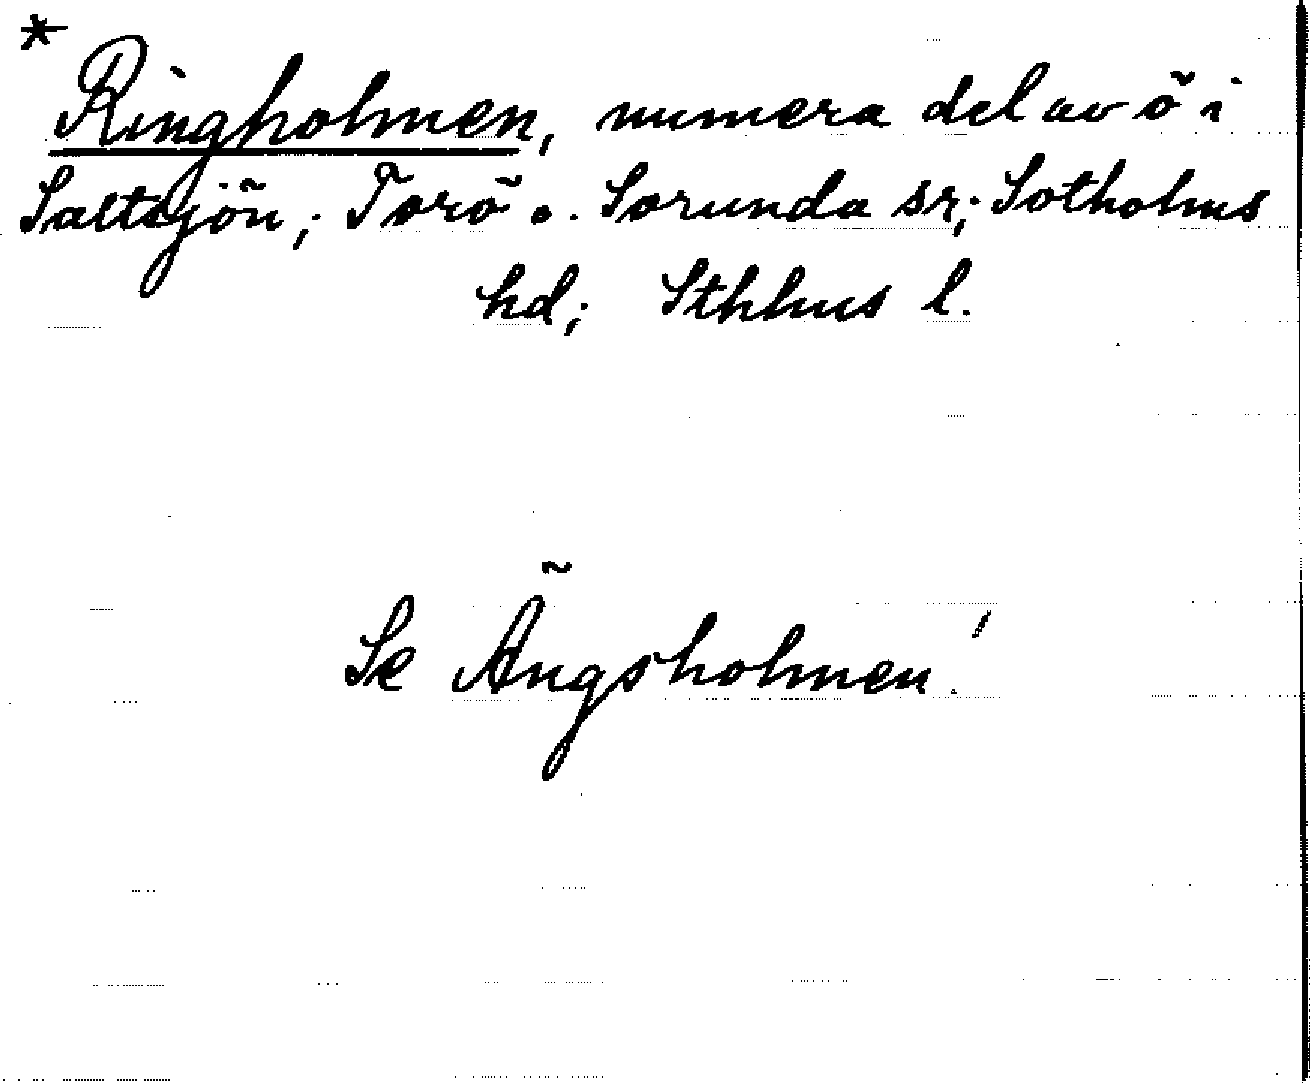 * Ringholmen, numera del av ö i
Saltsjön; Torö o. Sorunda sr; Sotholms
hd; Sthlms l.
Se Ängsholmen!